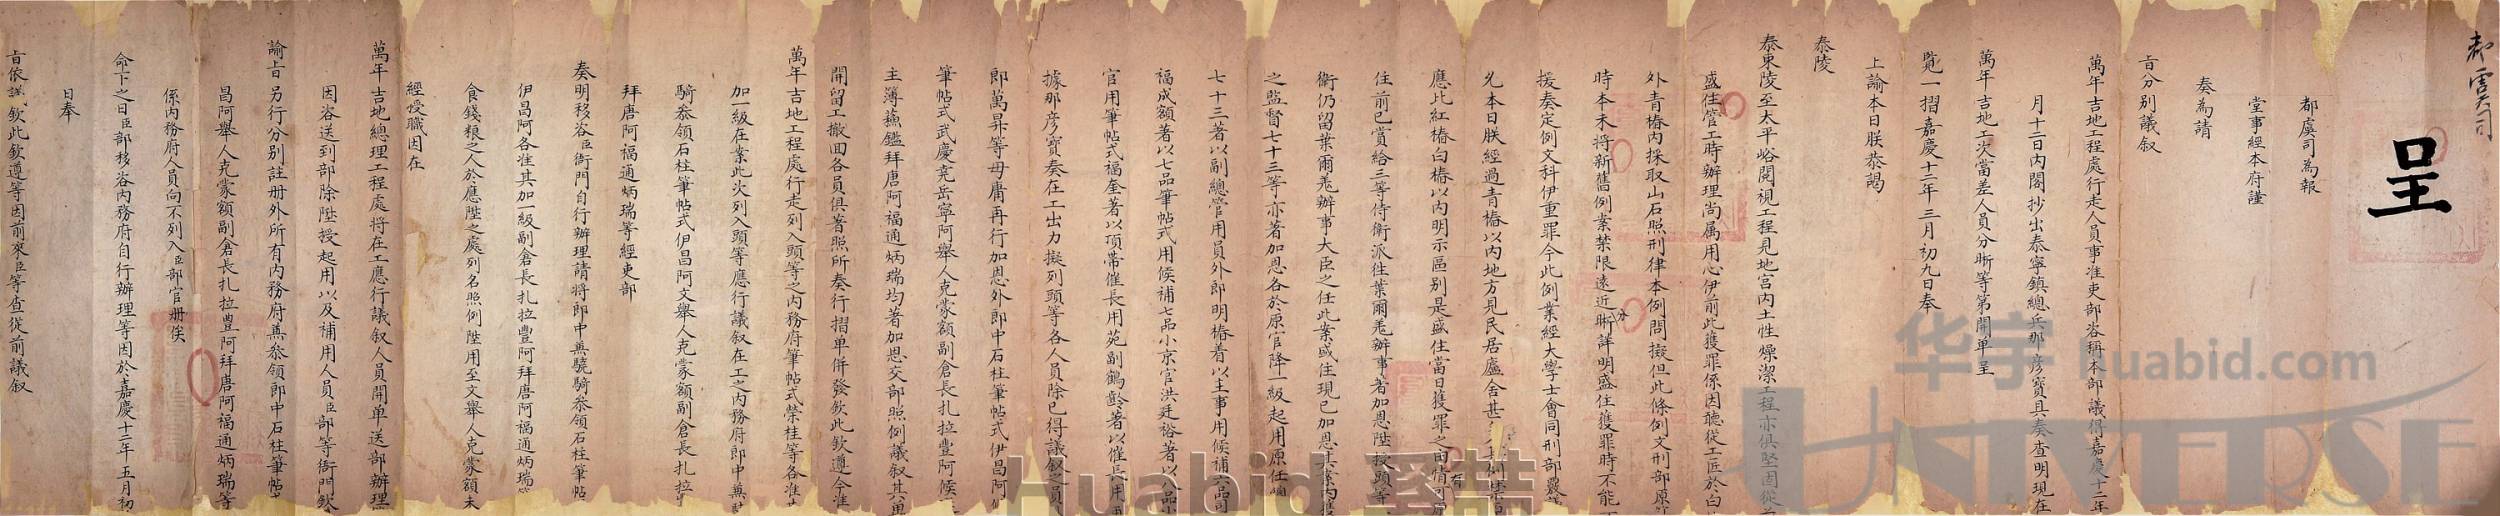 都虞司
呈
都虞司為報
堂事經本府謹
奏為請
旨分別議叙
萬年吉地工程處行走人員事准吏部咨稱本部議得嘉慶十二年
月十二日內閣抄出泰寧鎮總兵那彥寶具奏查明現在
萬年吉地工次當差人員分晰等第開单呈
覽一摺嘉慶十二年三月初九日奉
上諭本日朕恭謁
泰陵
泰東陵至太平峪閱視工程見地宮內土性燥潔工程亦俱堅固從
盛住管工時辦理尚属用心伊前此獲罪係因聽従工匠於白
外青樁內採取山石照刑律本例問擬但此條例文刑部原
時本未將新舊例案禁限遠近分晰詳明盛住獲罪時不能
援奏定例文科伊重罪今此例業經大學士會同刑部
允本日朕經過青樁以內地方見民居廬舍甚
應比紅樁白樁以內明示區别是盛住當日獲罪之由情
住前已賞給三等侍衛派徃葉爾羌辦事者加恩陞授頭等
衛仍留葉爾羌辦事大臣之任此案盛住現已加恩其案內獲
之監督七十三等亦著加恩各於原官降一級起用原任
七十三著以副總管用員外郎明椿着以主事用候補六品司
福成額著以七品筆帖式用候補七品小京官洪廷裕著以八品小
官用筆帖式福奎著以項帶催長用苑副鶴齡著以催長用
據那彥寶奏在工出力擬列頭等各人員除已得議叙之員
郎萬昇等毋庸再行加恩外郎中石柱筆帖式伊昌阿
筆帖式武慶堯岳寧阿舉人克蒙額副倉長扎拉豐阿候
主簿蕪鑑拜唐阿福通炳瑞均著加恩交部照例議叙其
開留工撤回各員俱著照所奏行摺单併發欽此欽遵今准
萬年吉地工程處行走列入頭等之內務府筆帖式榮柱等各准
加一級在案此次列入頭等應行議叙在工之內務府郎中兼
騎叅領石柱筆帖式伊昌阿文舉人克蒙額副倉長扎拉
拜唐阿福通炳瑞等經吏部
奏明移咨臣衙門自行辦理請將郎中兼驍騎叅領石柱筆帖
伊昌阿各准其加一級副倉長扎拉豐阿拜唐阿福通炳瑞
食錢粮之人於應陞之處列名照例陞用至文舉人克蒙額未
經授職因在
萬年吉地總理工程處將在工應行議叙人員開单送部辦理
因咨送到部除陞授起用以及補用人員臣部等衙門欽
諭旨另行分別註冊外所有內務府兼叅領郎中石柱筆帖
昌阿舉人克蒙額副倉長扎拉豐阿拜唐阿福通炳瑞等
係內務府人員向不列入臣部官冊俟
命下之日臣部移咨內務府自行辦理等因於嘉慶十二年五月初
日奉
旨依議欽此欽遵等因前來臣等查從前議叙